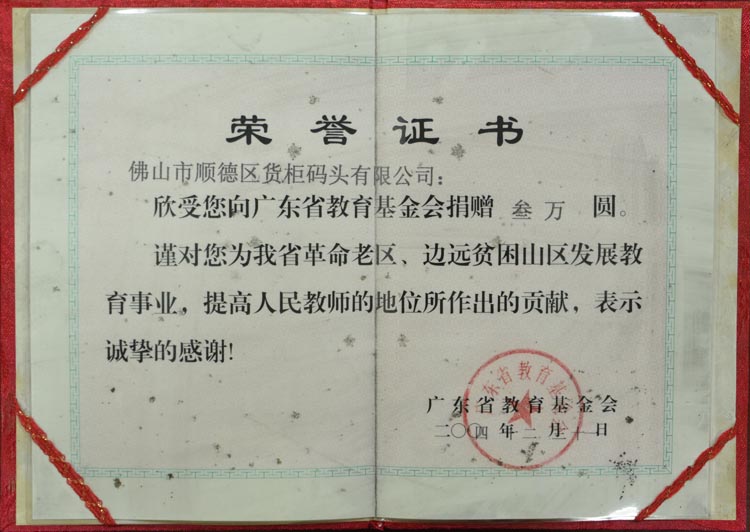 荣誉证书
佛山市顺德区货柜码头有限公司：
欣受您向广东省教育基金会捐赠 叁万 圆。
谨对您为我省革命老区、边远贫困山区发展教
育事业，提高人民教师的地位所作出的贡献，表示
诚挚的感谢！
广东省教育基金会
广东省教育基金会
二〇〇四年二月 日